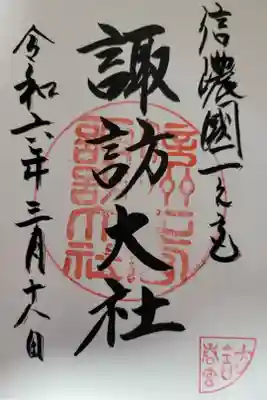 信濃國一之宮
諏訪大社
令和六年三月十八日